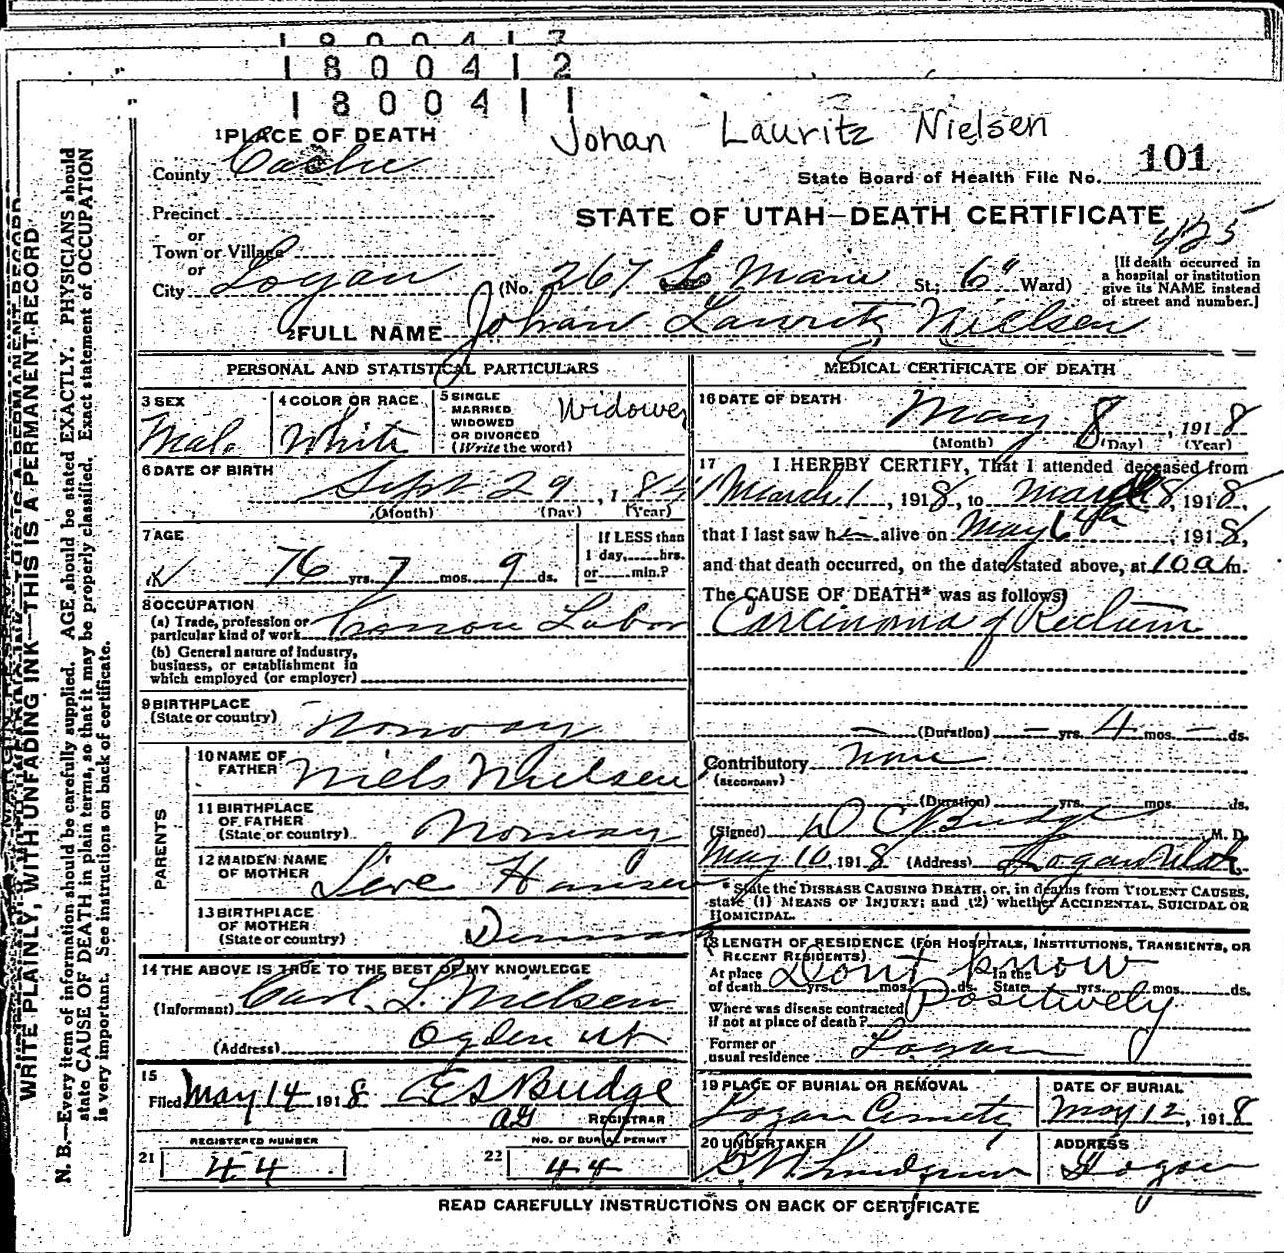 1800412
1800411
Johan Lauritz Nielsen
1 PLACE OF DEATH
County Cache
101
State Board of Health File No.
Precinct
or
STATE OF UTAH—DEATH CERTIFICATE
425
Town or Village
or
City Logan (No. 267 So Main St.; 6" Ward)
[If death occurred in
a hospital or institution
give its NAME instead
of street and number.]
2 FULL NAME Johan Lauritz Nielsen
PERSONAL AND STATISTICAL PARTICULARS
3 SEX
Male
4 COLOR OR RACE
White
5 SINGLE
MARRIED
WIDOWED
OR DIVORCED
(Write the word)
Widower
6 DATE OF BIRTH
Sept 29, 184
(Month) (Day) (Year)
7 AGE
76 yrs. 7 mos. 9 ds.
If LESS than
1 day, hrs.
or min.?
8 OCCUPATION
(a) Trade, profession or
particular kind of work Labor
(b) General nature of industry,
business, or establishment in
which employed (or employer)
9 BIRTHPLACE
(State or country) Norway
PARENTS
10 NAME OF
FATHER Niels Nielsen
11 BIRTHPLACE
OF FATHER
(State or country) Norway
12 MAIDEN NAME
OF MOTHER Hansen
13 BIRTHPLACE
OF MOTHER
(State or country) Denmark
14 THE ABOVE IS TRUE TO THE BEST OF MY KNOWLEDGE
(Informant) Carl L. Nielsen
(Address) Ogden Ut
15
Filed May 14 1918 E S Budge
REGISTRAR
REGISTERED NUMBER
21 44
NO. OF BURIAL PERMIT
22 44
MEDICAL CERTIFICATE OF DEATH
16 DATE OF DEATH
May 8, 1918
(Month) (Day) (Year)
17 I HEREBY CERTIFY, That I attended deceased from
March 1, 1918, to 8, 1918,
that I last saw h alive on May 6th, 1918,
and that death occurred, on the date stated above, at 10 a m.
The CAUSE OF DEATH* was as follows:
Carcinoma of Rectum
(Duration) — yrs. 4 mos. — ds.
Contributory none
(SECONDARY)
(Duration) yrs. mos. ds.
(Signed) D C Budge M. D.
May 10, 1918 (Address) Logan Utah
* State the DISEASE CAUSING DEATH, or, in deaths from VIOLENT CAUSES,
state (1) MEANS OF INJURY; and (2) whether ACCIDENTAL, SUICIDAL OR
HOMICIDAL.
18 LENGTH OF RESIDENCE (FOR HOSPITALS, INSTITUTIONS, TRANSIENTS, OR
RECENT RESIDENTS)
Dont know
At place
of death yrs. mos. ds.
In the
State yrs. mos. ds.
Positively
Where was disease contracted
if not at place of death?
Former or
usual residence Logan
19 PLACE OF BURIAL OR REMOVAL
Logan Cemetery
DATE OF BURIAL
May 12, 1918
20 UNDERTAKER
ADDRESS
Logan
READ CAREFULLY INSTRUCTIONS ON BACK OF CERTIFICATE
WRITE PLAINLY, WITH UNFADING INK—THIS IS A PERMANENT RECORD
N. B.—Every item of information should be carefully supplied. AGE should be stated EXACTLY. PHYSICIANS should
state CAUSE OF DEATH in plain terms, so that it may be properly classified. Exact statement of OCCUPATION
is very important. See instructions on back of certificate.